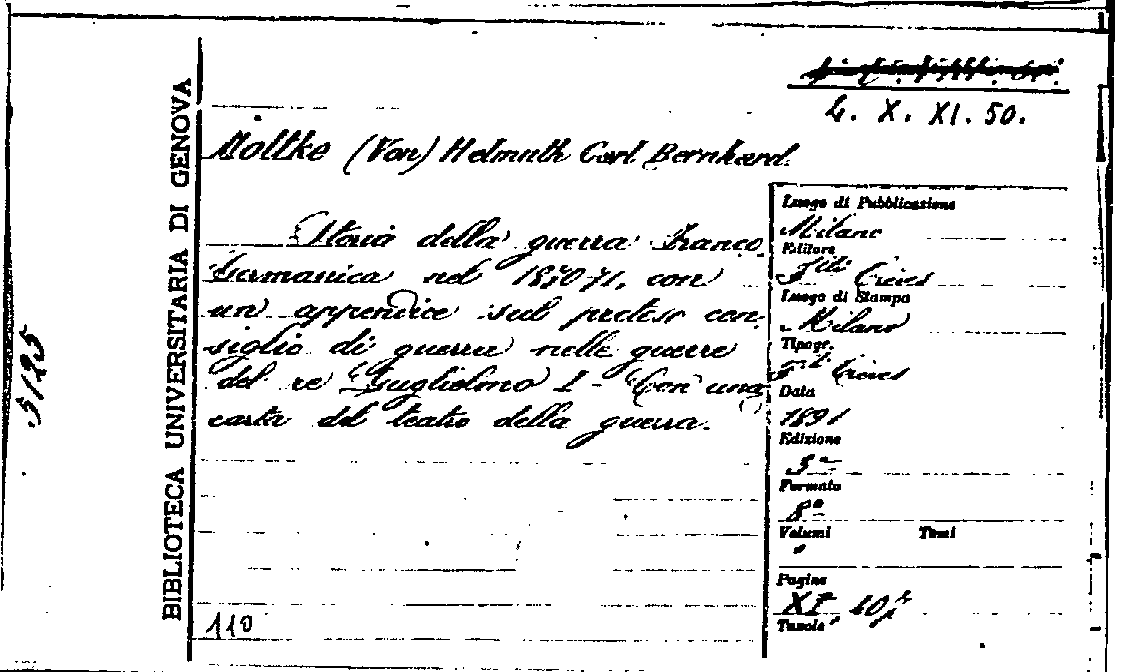 4. X. XI. 50.
Moltke (Von) Helmuth Carl Bernhard.
Storia della guerra Franco
Germanica nel 1870-71, con
un appendice sul preteso con-
siglio di guerra nelle guerre
del re Guglielmo I - Con una
carta del teatro della guerra.
110
Luogo di Pubblicazione
Milano
Editore
F.lli Treves
Luogo di Stampa
Milano
Tipogr.
F.lli Treves
Data
1891
Edizione
Formato
8°
Volumi Tomi
"
Pagine
XI
Tavole
BIBLIOTECA UNIVERSITARIA DI GENOVA
5125